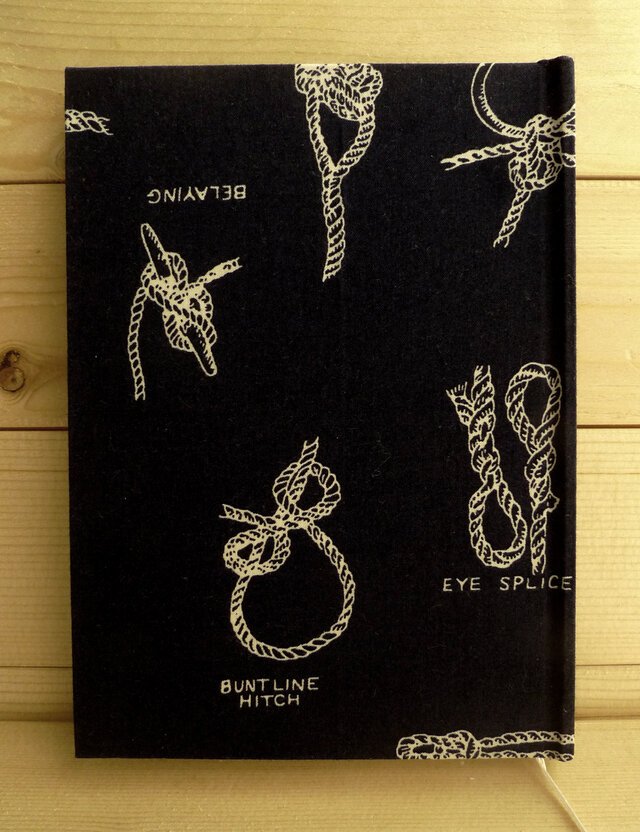 BELAYING
EYE SPLICE
BUNTLINE
HITCH